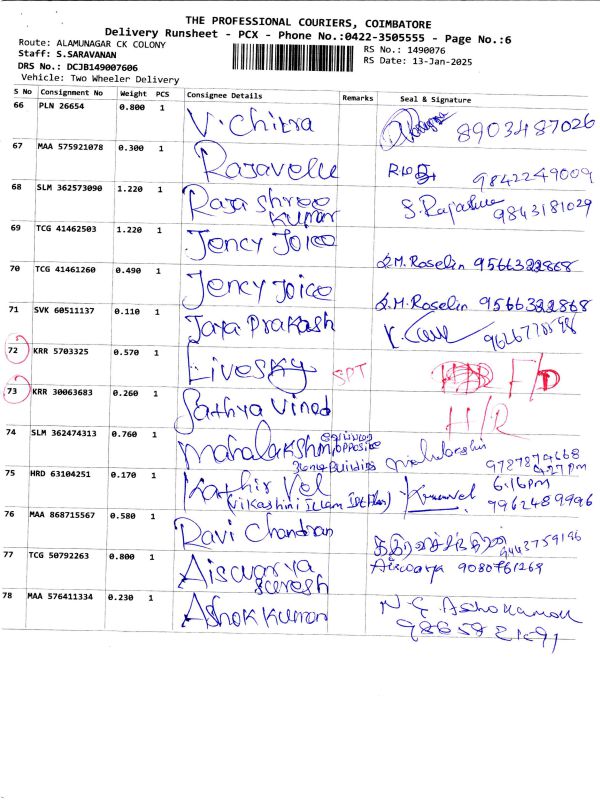 THE PROFESSIONAL COURIERS, COIMBATORE
Delivery Runsheet - PCX - Phone No.:0422-3505555 - Page No.:6
Route: ALAMUNAGAR CK COLONY
RS No.: 1490076
Staff: S.SARAVANAN
RS Date: 13-Jan-2025
DRS No.: DCJB149007606
Vehicle: Two Wheeler Delivery
S No Consignment No Weight PCS Consignee Details Remarks Seal & Signature
66 PLN 26654 0.800 1 V. Chitra 8903487026
67 MAA 575921078 0.300 1 Rajavelu 9842249009
68 SLM 362573090 1.220 1 Raja Shree Kumar S. Rajashree 9843181029
69 TCG 41462503 1.220 1 Jency Joice
J.M. Roselin 9566322868
70 TCG 41461260 0.490 1 Jency Joice J.M. Roselin 9566322868
71 SVK 60511137 0.110 1 Jaya Prakash
72 KRR 5703325 0.570 1 Livesky SPT F/D
73 KRR 30063683 0.260 1 Sathya Vinod H/R
74 SLM 362474313 0.760 1 Mahalakshmi opposite Building 9787874668
4.27 pm
75 HRD 63104251 0.170 1 Kathir Vel 6.16 pm
(Vikashini Illam 9962489996
76 MAA 868715567 0.580 1 Ravi Chandran 9443759196
77 TCG 50792263 0.800 1 Aiswarya Suresh Aiswarya 9080761268
78 MAA 576411334 0.230 1 Ashok Kumar